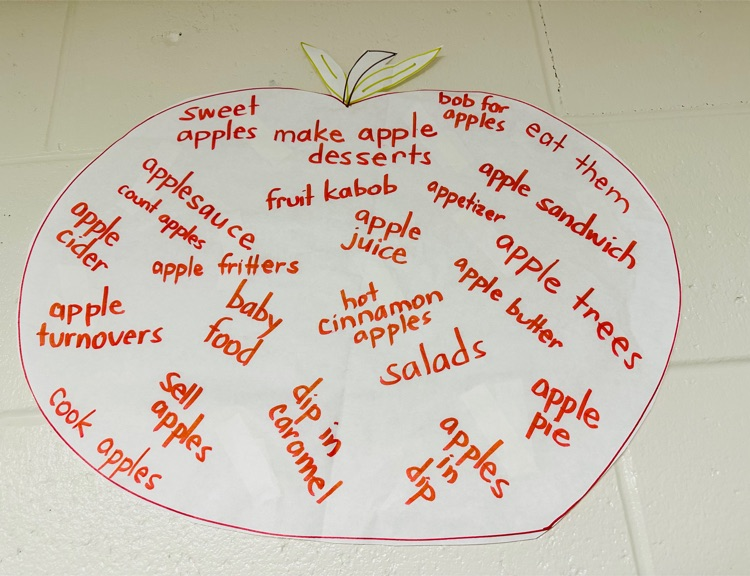 sweet
apples
make apple
desserts
bob for
apples
eat them
applesauce
count apples
fruit kabob
appetizer
apple sandwich
apple
cider
apple
juice
apple trees
apple fritters
apple butter
apple
turnovers
baby
food
hot
cinnamon
apples
salads
cook apples
sell
apples
dip in
caramel
apples
in
dip
apple
pie